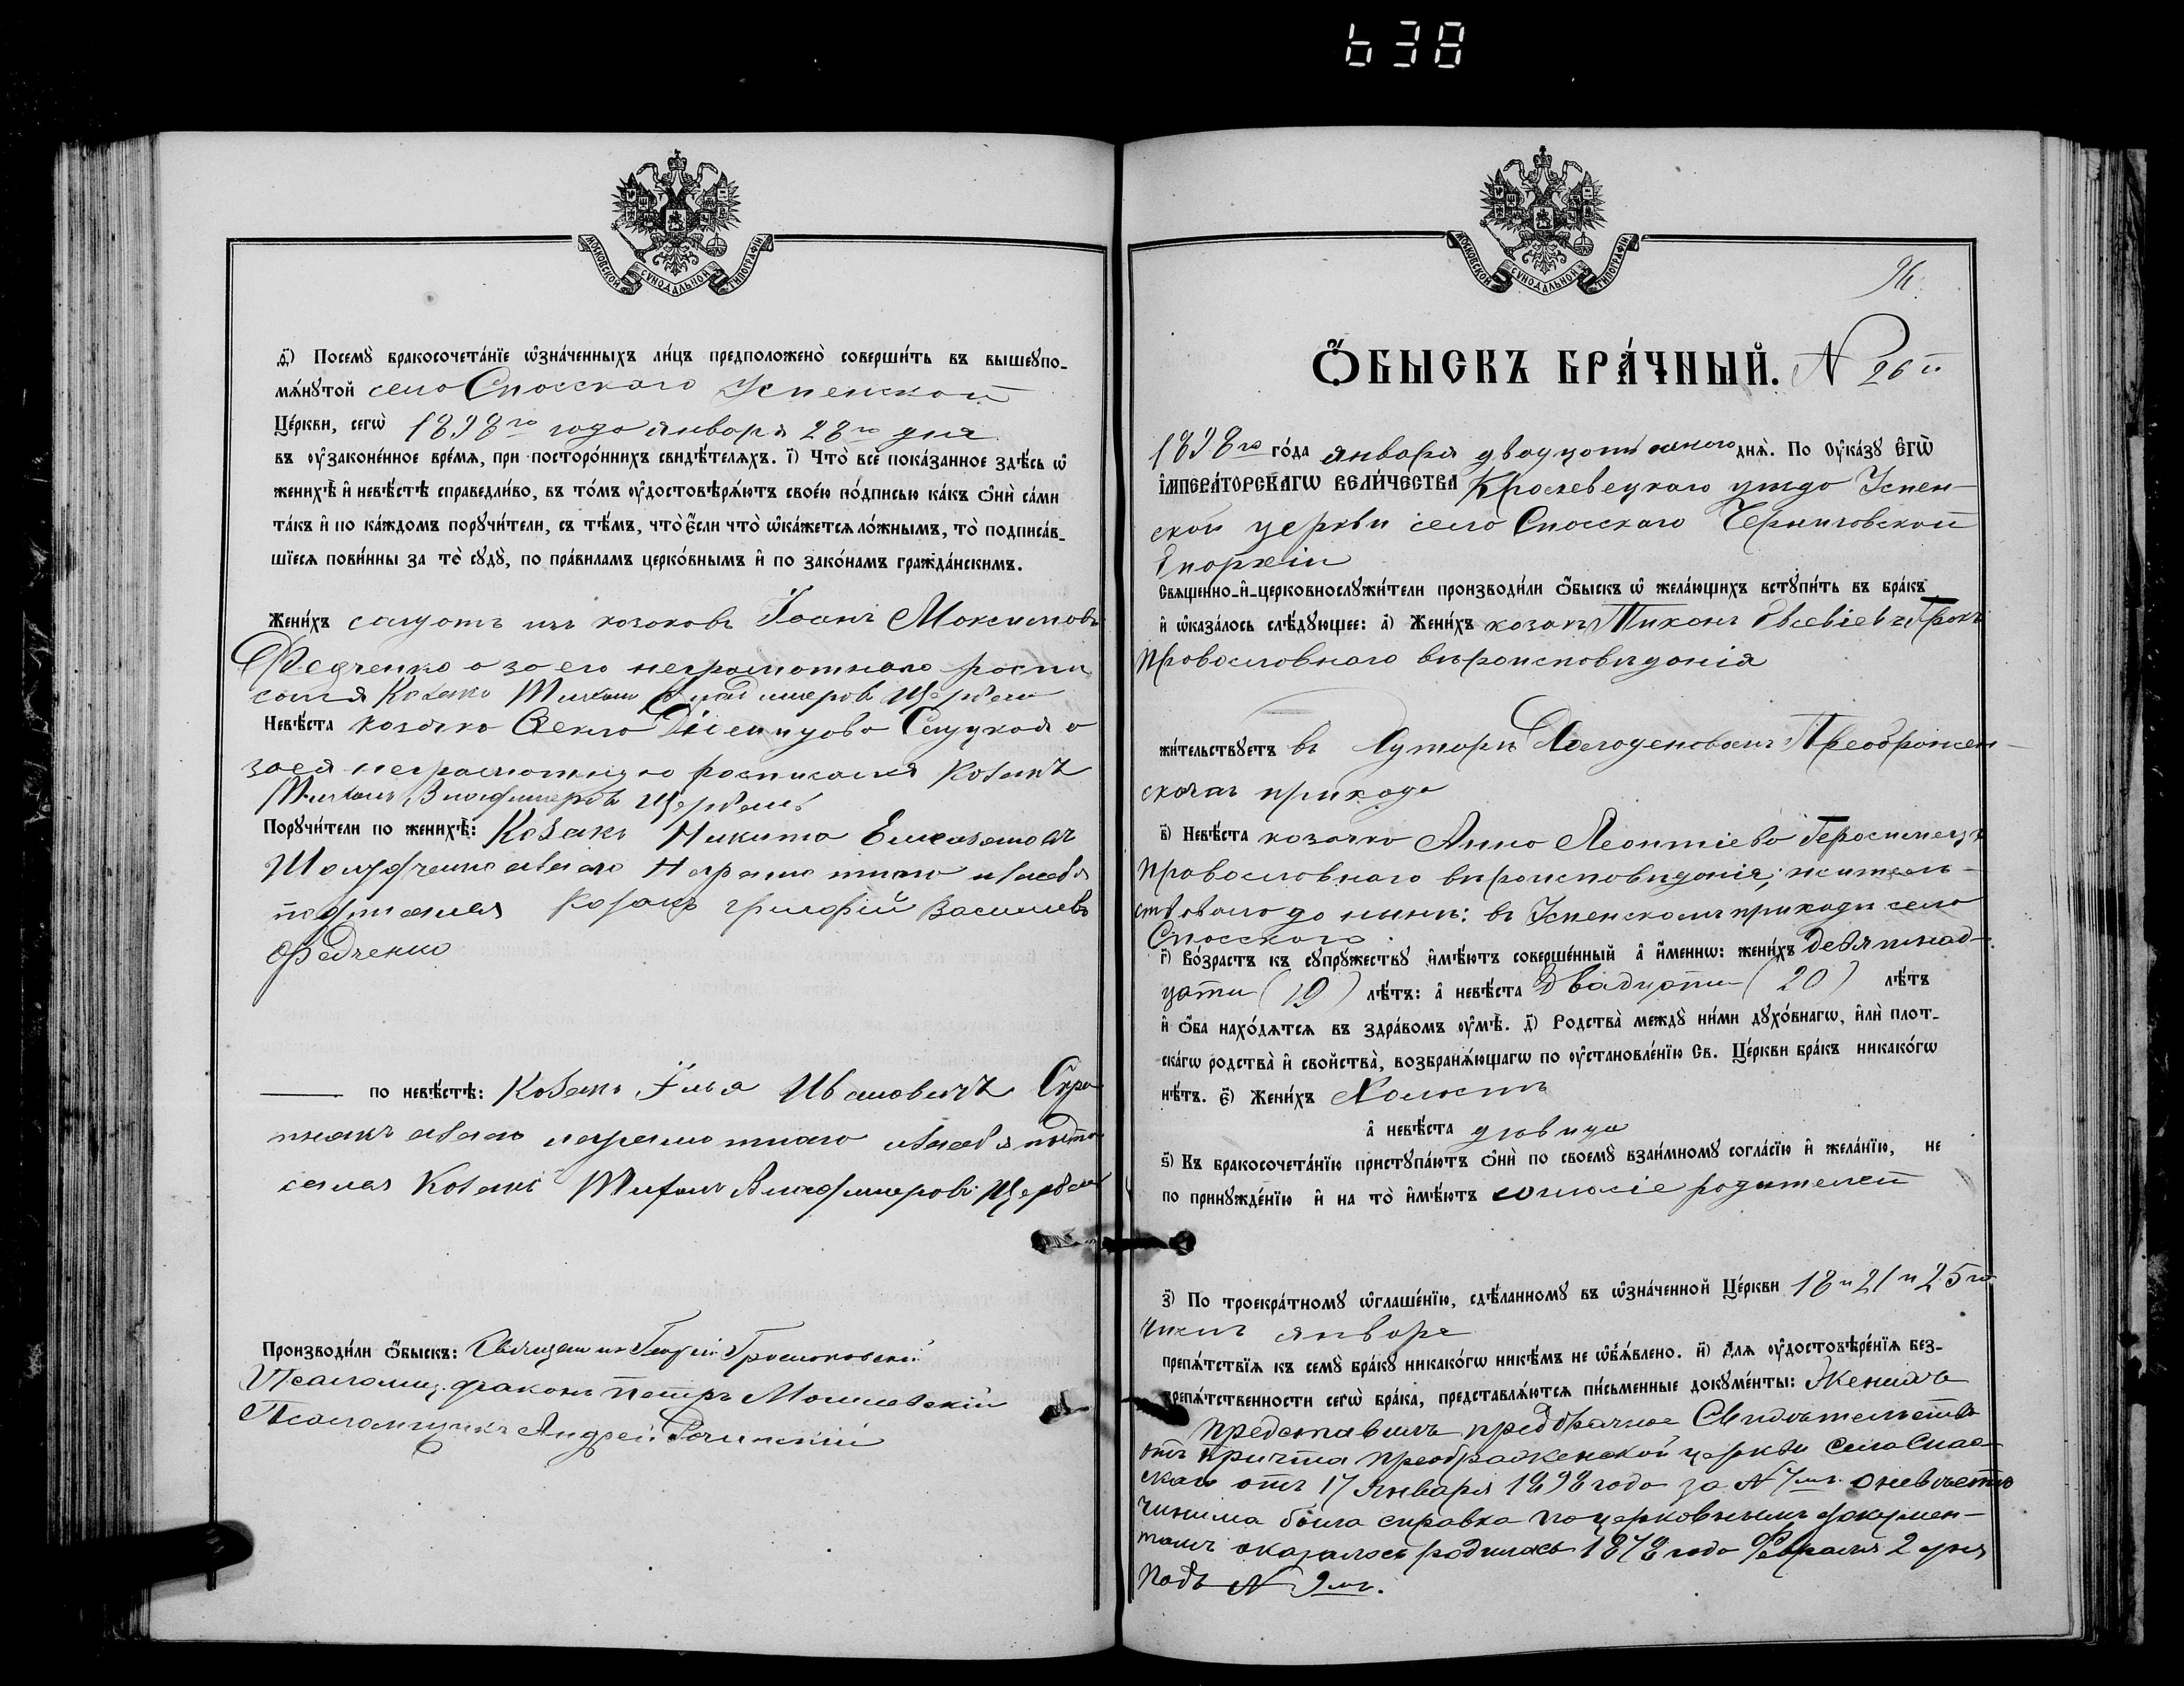 638
МОСКОВСКОЙ СУНОДАЛЬНОЙ ТИПОГРАФІИ
ѳ҃) Посемꙋ̀ бракосочета́нїе ѡ҆зна́ченныхъ ли́цъ предположено̀ соверши́ть въ вышеꙋпо-
мѧ́нꙋтой села Спасскаго Успенской
Це́ркви, сегѡ̀ 1898го года января 28го дня
въ оу҆законе́нное вре́мѧ, при посторо́ннихъ свидѣ́телѧхъ. і҃) Что̀ всѐ пока́занное здѣ́сь ѡ҆
женихѣ̀ и҆ невѣ́стѣ справедли́во, въ то́мъ оу҆достовѣрѧ́ютъ свое́ю по́дписью ка́къ ѻ҆нѝ са́ми
та́къ и҆ по ка́ждомъ порꙋчи́тели, съ тѣ́мъ, что̀ є҆́сли что̀ ѡ҆ка́жетсѧ ло́жнымъ, то̀ подписа́в-
шїесѧ пови́нны за то̀ сꙋдꙋ̀, по пра́виламъ церко́внымъ и҆ по зако́намъ гражда́нскимъ.
Жени́хъ солдатъ изъ козаковъ Іоанъ Максимовъ
Федченко а за его неграмотнаго роспи
сался Козакъ Михаилъ Владимеровъ Щербакъ
Невѣ́ста козачка Ѳекла Слуцкая а
за ея неграмотную росписался Козакъ
Михаилъ Владимеровъ Щербакъ
Порꙋчи́тели по женихѣ̀: Козакъ Никита
неграмотнаго и за себя
подписался Козакъ Василиевъ
Федченко
по невѣ́стѣ: Козакъ Илья Ивановичъ
неграмотнаго и за себя подпи
сался Козакъ Михаилъ Владимеровъ Щербакъ
Производи́ли ѻ҆́быскъ: Священникъ Георгій
Псаломщ. діаконъ Петръ
Псаломщикъ Андрей
МОСКОВСКОЙ СУНОДАЛЬНОЙ ТИПОГРАФІИ
96.
Ѻ҆́БЫСКЪ БРА́ЧНЫЙ. N 26й
1898го го́да января двадцать днѧ̀. По Оу҆ка́зꙋ Є҆ГѠ̀
І҆МПЕРА́ТОРСКАГѠ ВЕЛИ́ЧЕСТВА Кролевецкаго уѣзда Успен-
ской церкви села Спасскаго Черниговской
Епархіи
Сващенно-и҆-церковнослꙋжи́тели производи́ли ѻ҆́быскъ ѡ҆ жела́ющихъ встꙋпи́ть въ бра́къ
и҆ ѡ҆каза́лось слѣ́дꙋющее: а҃) Жени́хъ козакъ Тихонъ Евсевіевъ
православнаго вѣроисповѣданія
жи́тельствꙋетъ въ Хуторѣ Преображен-
скаго прихода
в҃) Невѣ́ста козачка Анна Леонтіева Герасименко
православнаго вѣроисповѣданія, житель-
ствовала до нынѣ: въ Успенскомъ приходѣ села
Спасскаго
г҃) Во́зрастъ къ сꙋпрꙋ́жествꙋ и҆мѣ́ютъ соверше́нный а҆ и҆́менно: жени́хъ девятнад-
цати (19) лѣ́тъ: а҆ невѣ́ста двадцати (20) лѣ́тъ
и҆ ѻ҆́ба нахо́дѧтсѧ въ здра́вомъ оу҆мѣ̀. д҃) Родства̀ междꙋ̀ ни́ми дꙋхо́внагѡ, и҆лѝ плот-
ска́гѡ родства̀ и҆ свойства̀, возбранѧ́ющагѡ по оу҆становле́нїю Св. Це́ркви бра́къ никако́гѡ
нѣ́тъ. є҃) Жени́хъ Холостъ
а҆ невѣ́ста дѣвица
ѕ҃) Къ бракосочета́нїю пристꙋпа́ютъ ѻ҆нѝ по своемꙋ̀ взаи́мномꙋ согла́сїю и҆ жела́нїю, не
по принꙋжде́нїю и҆ на то̀ и҆мѣ́ютъ согласіе родителей
з҃) По троекра́тномꙋ ѡ҆глаше́нїю, сдѣ́ланномꙋ въ ѡ҆зна́ченной Це́ркви 18 и 21 и 25го
числъ января
препѧ́тствїѧ къ семꙋ̀ бра́кꙋ никако́гѡ никѣ́мъ не ѡ҆б̾ѧ́влено. и҃) Длѧ оу҆достовѣре́нїѧ без-
препѧ́тственности сегѡ̀ бра́ка, представлѧ́ютсѧ пи́сьменные докꙋме́нты: Женихъ
представилъ предбрачное Свидѣтельство
отъ причта преображенской церкви Села Спас-
скаго отъ 17 Января 1898 года за N 7мъ. о невѣстѣ
чинима была справка по церковнымъ докумен-
тамъ оказалось родилась 1878 года Февраля 2 дня
подъ N 9мъ.